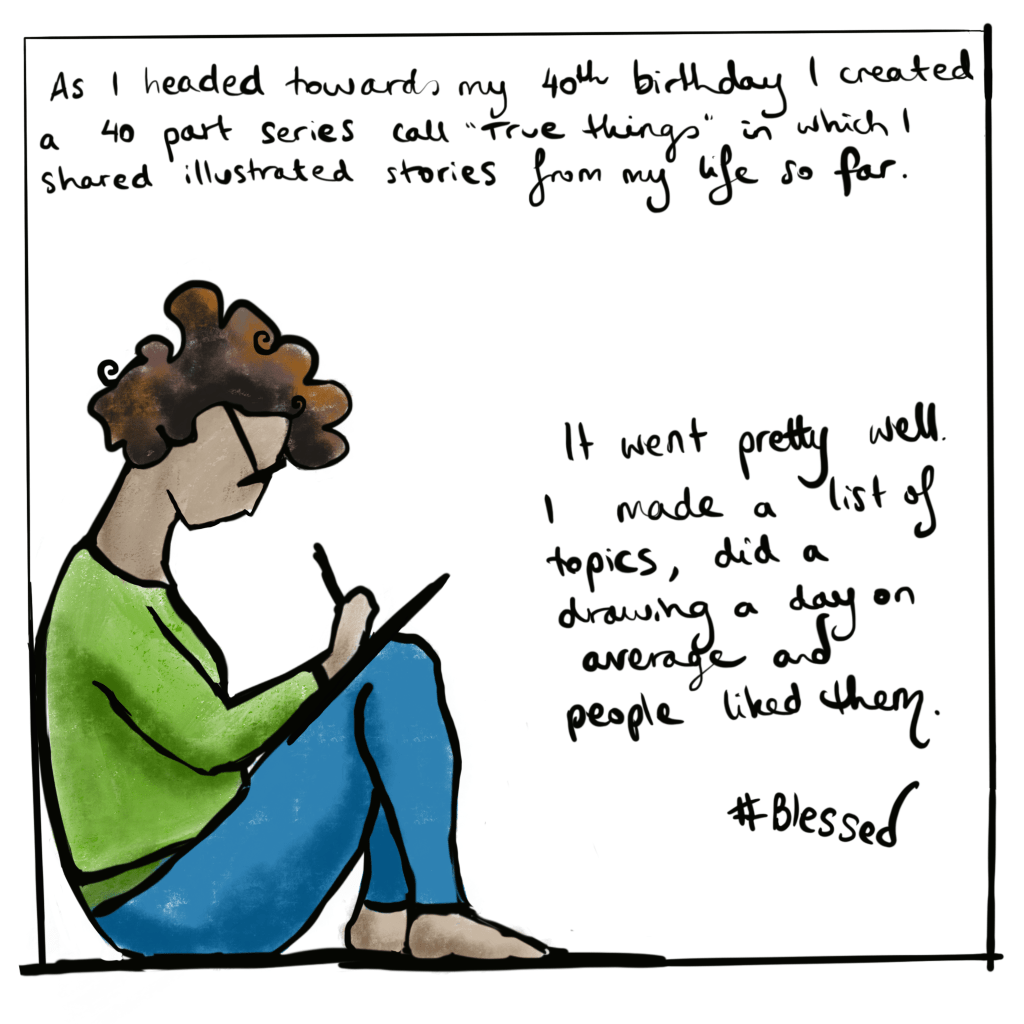 As I headed towards my 40th birthday I created
a 40 part series call "True things" in which I
shared illustrated stories from my life so far.
It went pretty well.
I made a list of
topics, did a
drawing a day on
average and
people liked them.
#Blessed